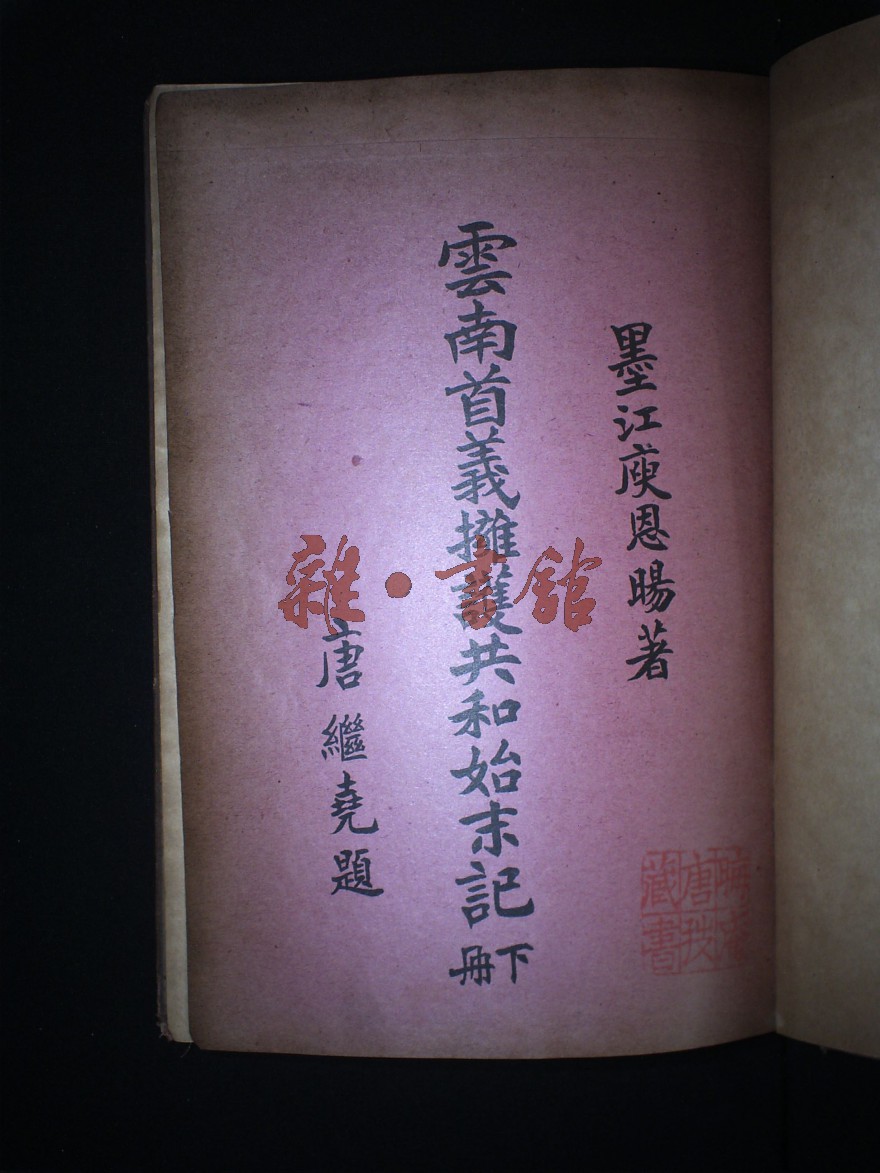 墨江庾恩暘著
雲南首義擁護共和始末記
下冊
唐繼堯題
雜·書館
藏書